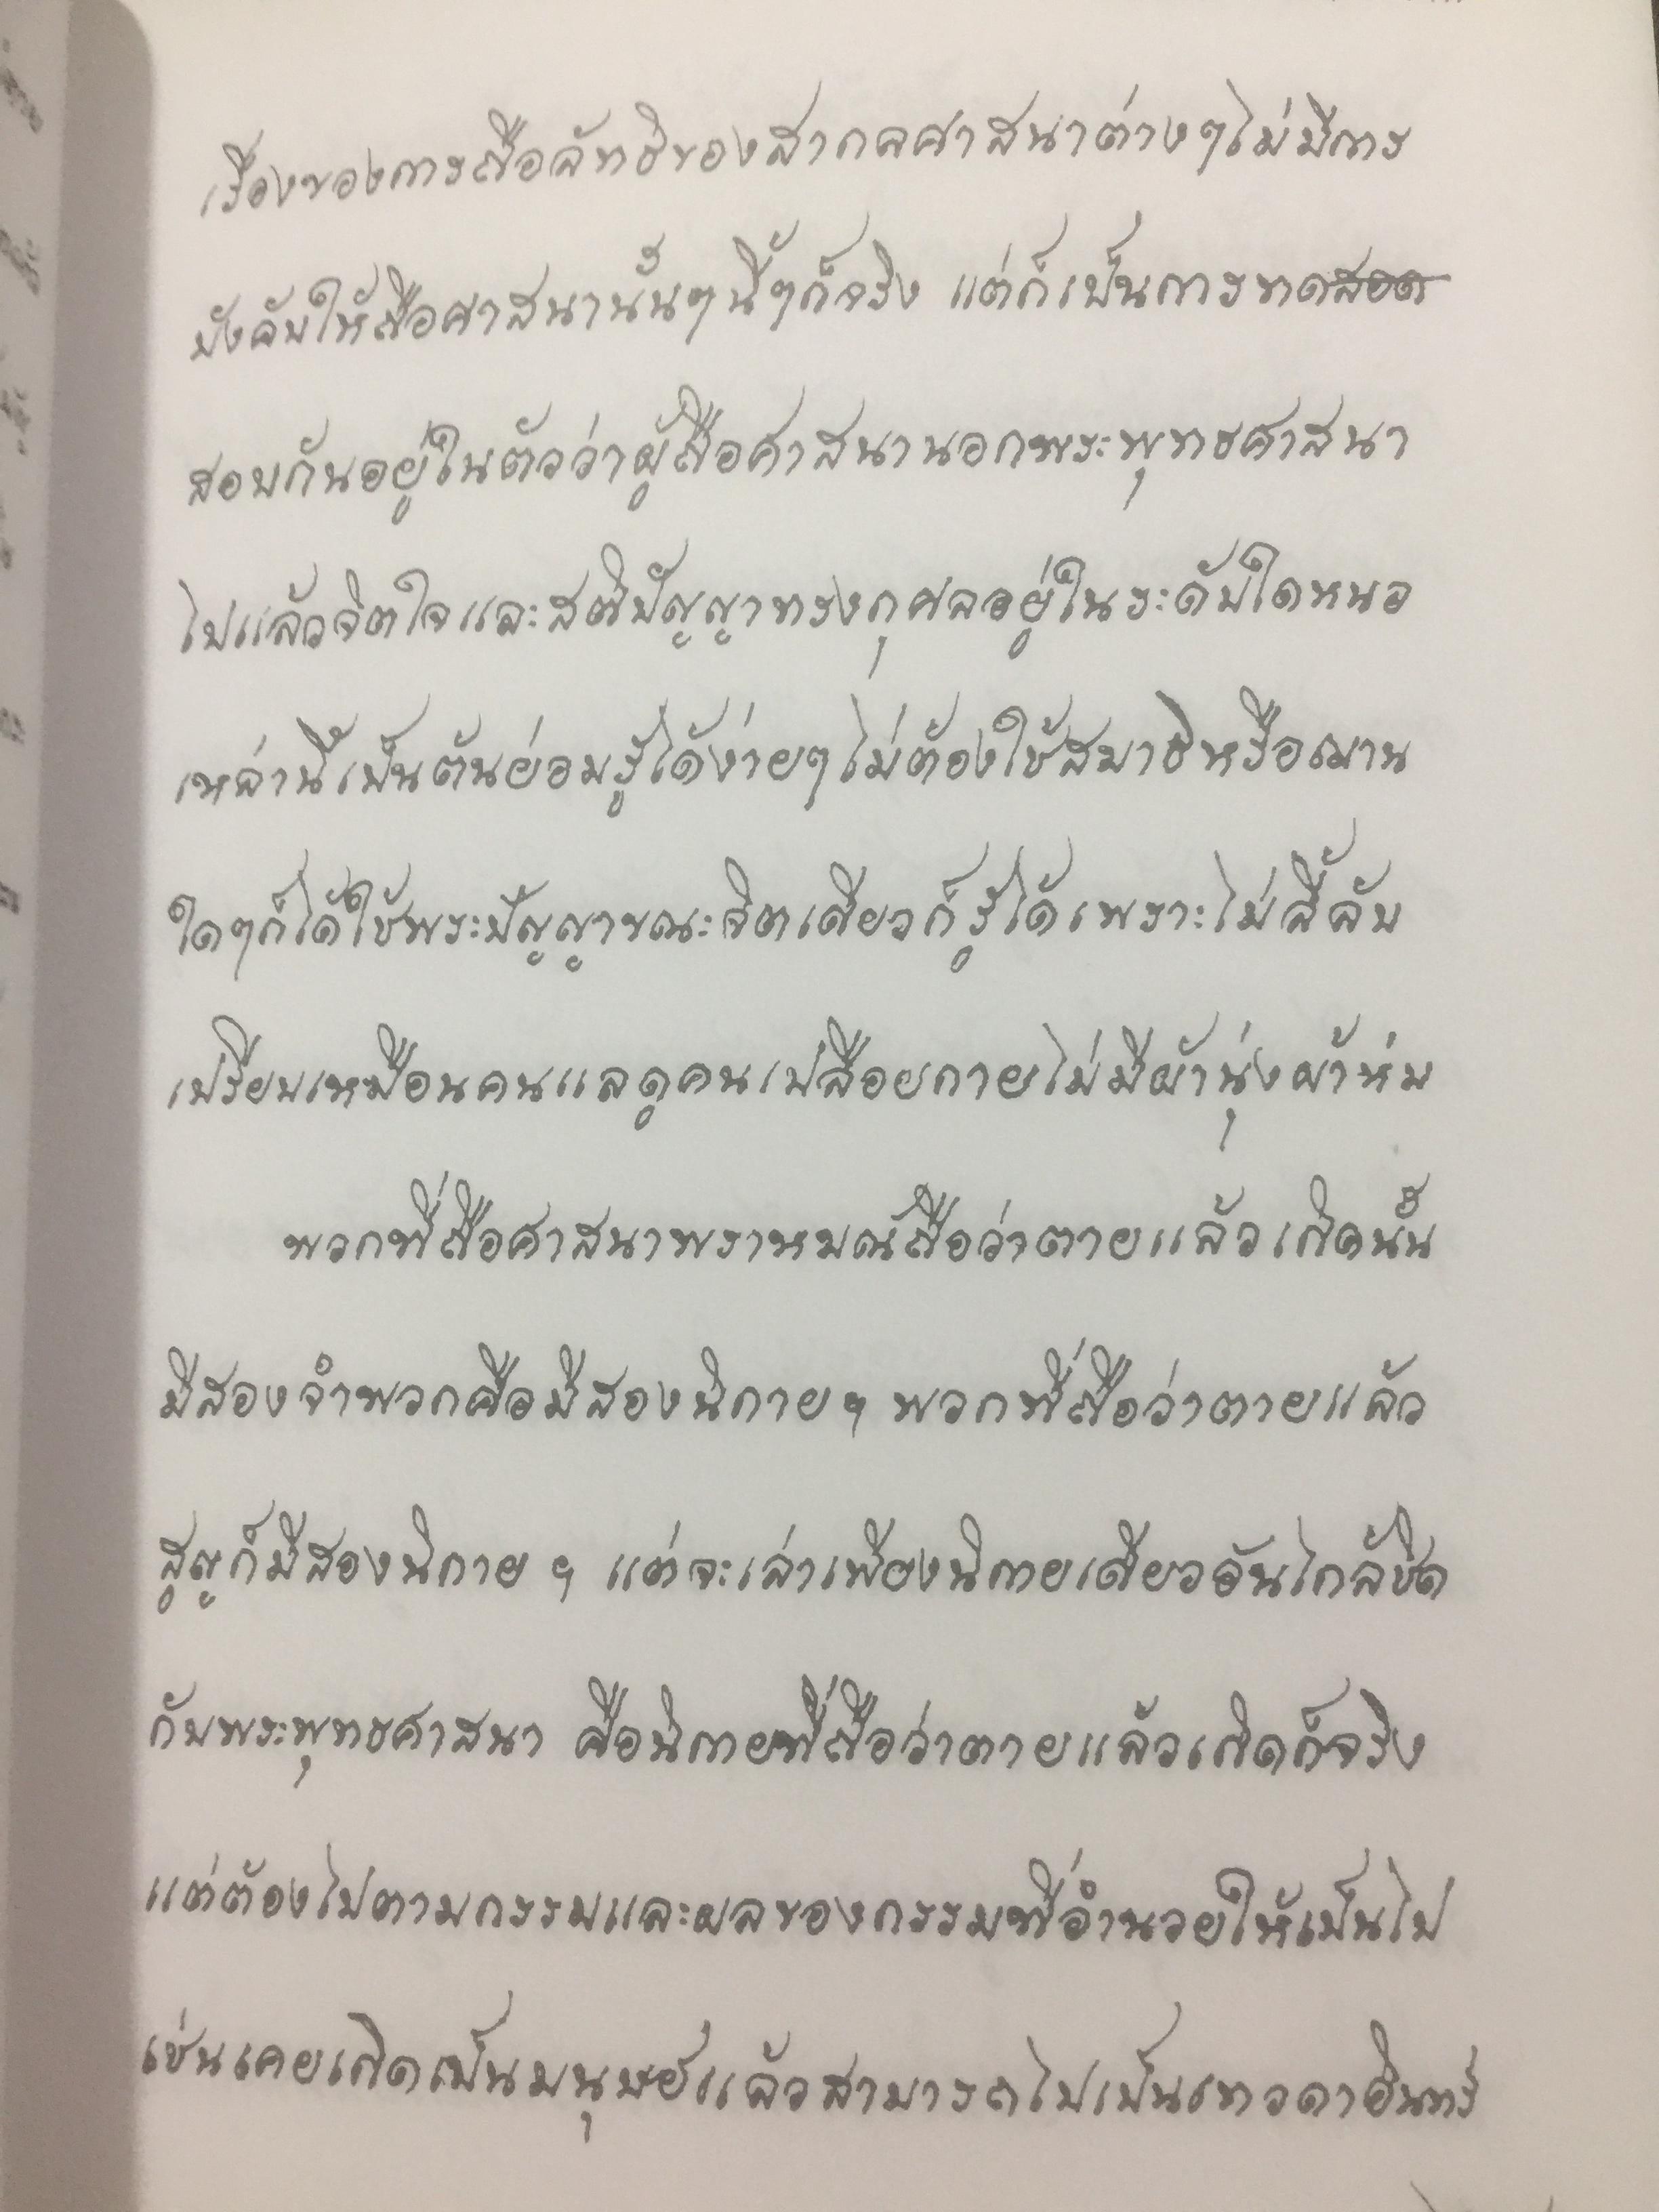 เรื่องของการถือลัทธิของสากลศาสนาต่างๆไม่มีการ
บังคับให้ถือศาสนานั้นๆนี้ๆก็จริง แต่ก็เป็นการทดสอด
สอบกันอยู่ในตัวว่าผู้ถือศาสนานอกพระพุทธศาสนา
ไปแล้วจิตใจและสติปัญญาทรงกุศลอยู่ในระดับใดหนอ
เหล่านี้เป็นต้นย่อมรู้ได้ง่ายๆไม่ต้องใช้สมาธิหรือฌาน
ใดๆก็ได้ใช้พระปัญญาขณะจิตเดียวก็รู้ได้เพราะไม่ลี้ลับ
เปรียบเหมือนคนแลดูคนเปลือยกายไม่มีผ้านุ่งผ้าห่ม
พวกที่ถือศาสนาพราหมณ์ถือว่าตายแล้วเกิดนั้น
มีสองจำพวกคือมีสองนิกาย ฯ พวกที่ถือว่าตายแล้ว
สูญก็มีสองนิกาย ฯ แต่จะเล่าเพียงนิกายเดียวอันใกล้ชิด
กับพระพุทธศาสนา คือนิกายที่ถือว่าตายแล้วเกิดก็จริง
แต่ต้องไปตามกรรมและผลของกรรมที่อำนวยให้เป็นไป
เช่นเคยเกิดเป็นมนุษย์แล้วสามารถไปเป็นเทวดาอินทร์